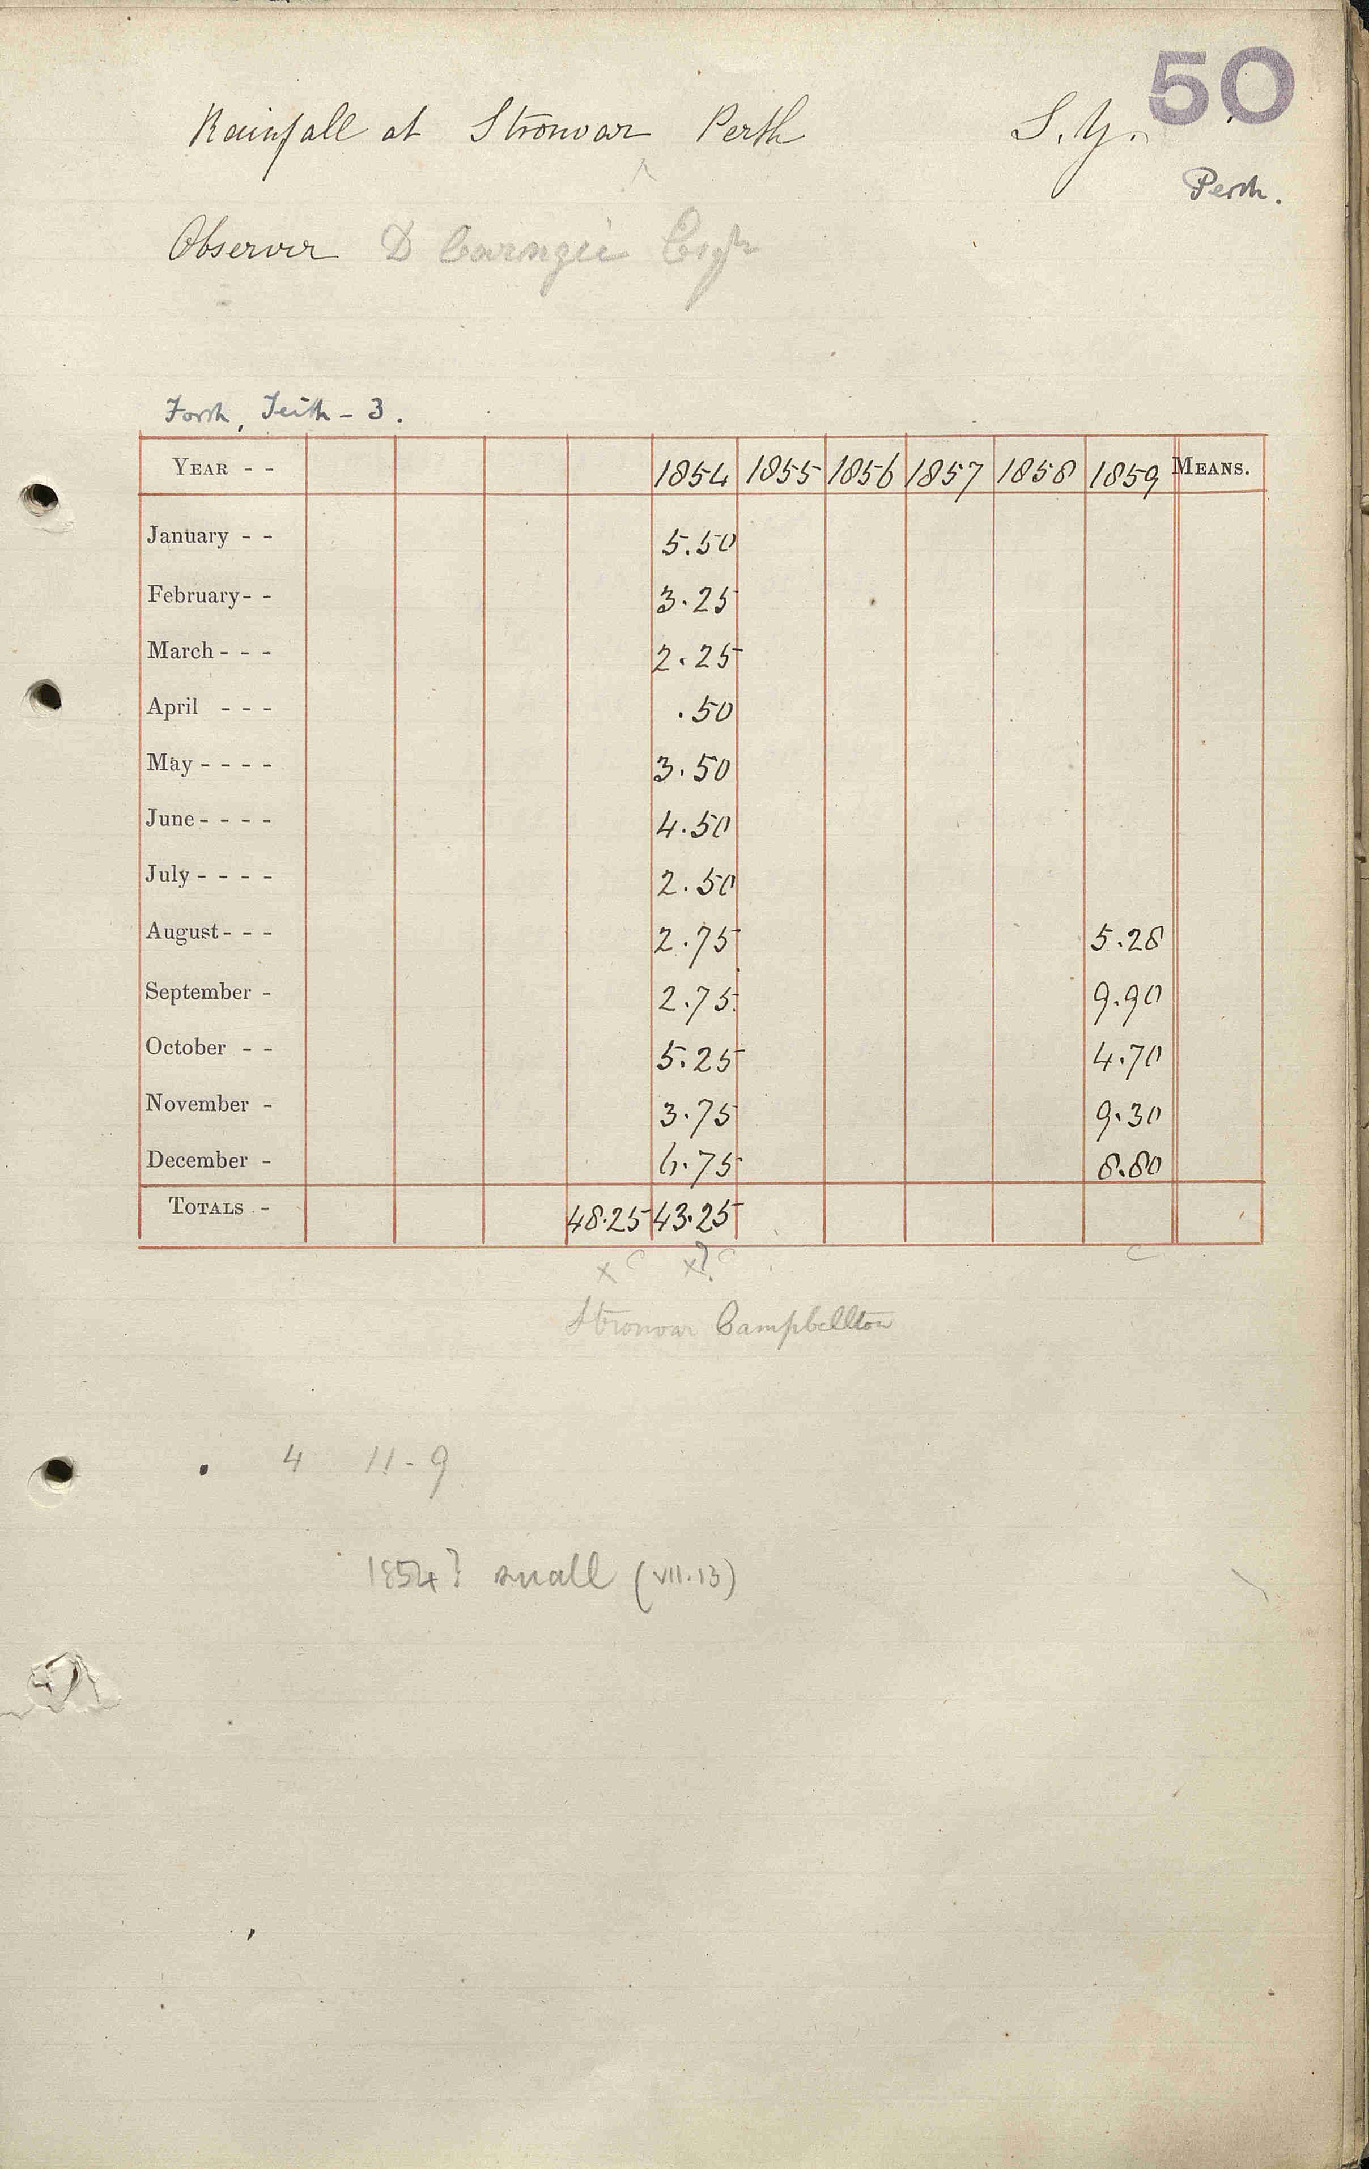 50
Rainfall at Stronvar Perth S.Y.
Perth.
Observer D Carnegie Esqr
Forth, Teith - 3.
YEAR - - 1854 1855 1856 1857 1858 1859 MEANS.
January - - 5.50
February - - 3.25
March - - - 2.25
April - - - .50
May - - - - 3.50
June - - - - 4.50
July - - - - 2.50
August - - - 2.75 5.28
September - 2.75 9.90
October - - 5.25 4.70
November - 3.75 9.30
December - 6.75 8.80
TOTALS - 48.25 43.25
x c x? c c
Stronvar Campbellton
4 11-9
1854? small (VII.13)